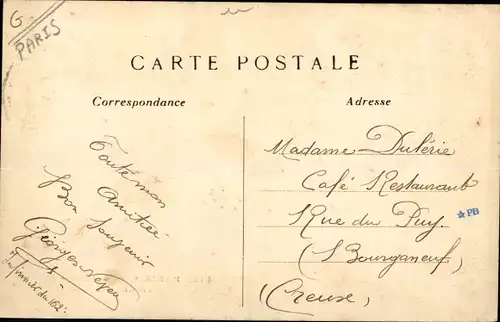 G
PARIS
CARTE POSTALE
Correspondance
Adresse
Toute mon
Amitiée
Bon Souvenir
Georges
du 162e
Madame Dulérie
Café Restaurant
Rue du Puy.
PB
(Bourganeuf)
(Creuse)